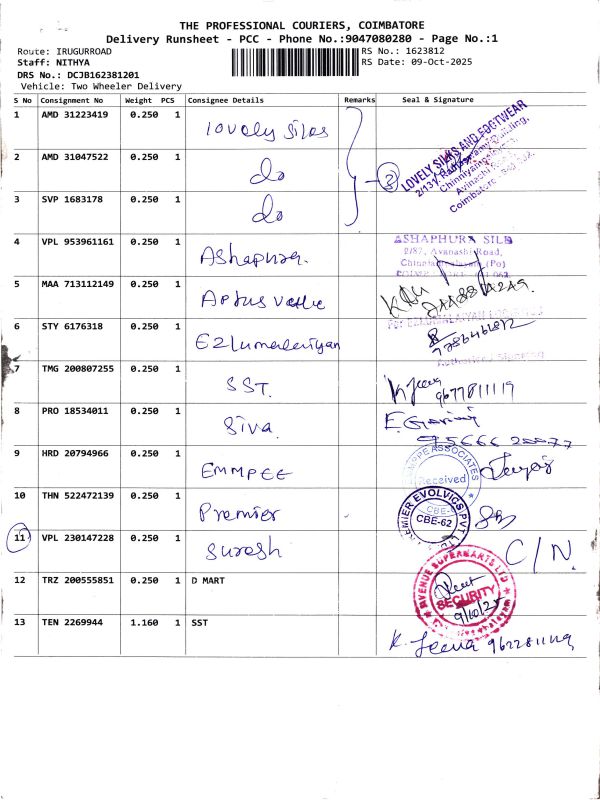 THE PROFESSIONAL COURIERS, COIMBATORE
Delivery Runsheet - PCC - Phone No.:9047080280 - Page No.:1
Route: IRUGURROAD
RS No.: 1623812
Staff: NITHYA
RS Date: 09-Oct-2025
DRS No.: DCJB162381201
Vehicle: Two Wheeler Delivery
S No Consignment No Weight PCS Consignee Details Remarks Seal & Signature
1 AMD 31223419 0.250 1 lovely silas
LOVELY SILKS AND FOOTWEAR
2 AMD 31047522 0.250 1 do
3
3 SVP 1683178 0.250 1 do
4 VPL 953961161 0.250 1 Ashapura.
ASHAPHURA SILK
2/87, Avanashi Road,
5 MAA 713112149 0.250 1 Aptus
6 STY 6176318 0.250 1 Ezlumalaiyan
7 TMG 200807255 0.250 1 SST.
K Jeena
9677811119
8 PRO 18534011 0.250 1 Siva.
9 HRD 20794966 0.250 1 EMMPEE
ASSOCIATES
Received
10 THN 522472139 0.250 1 Premier
PREMIER EVOLVICS PVT
CBE-62
11 VPL 230147228 0.250 1 Suresh
C/N.
12 TRZ 200555851 0.250 1 D MART
AVENUE SUPERMARTS LTD
SECURITY
9/10/25
13 TEN 2269944 1.160 1 SST
K. Jeena